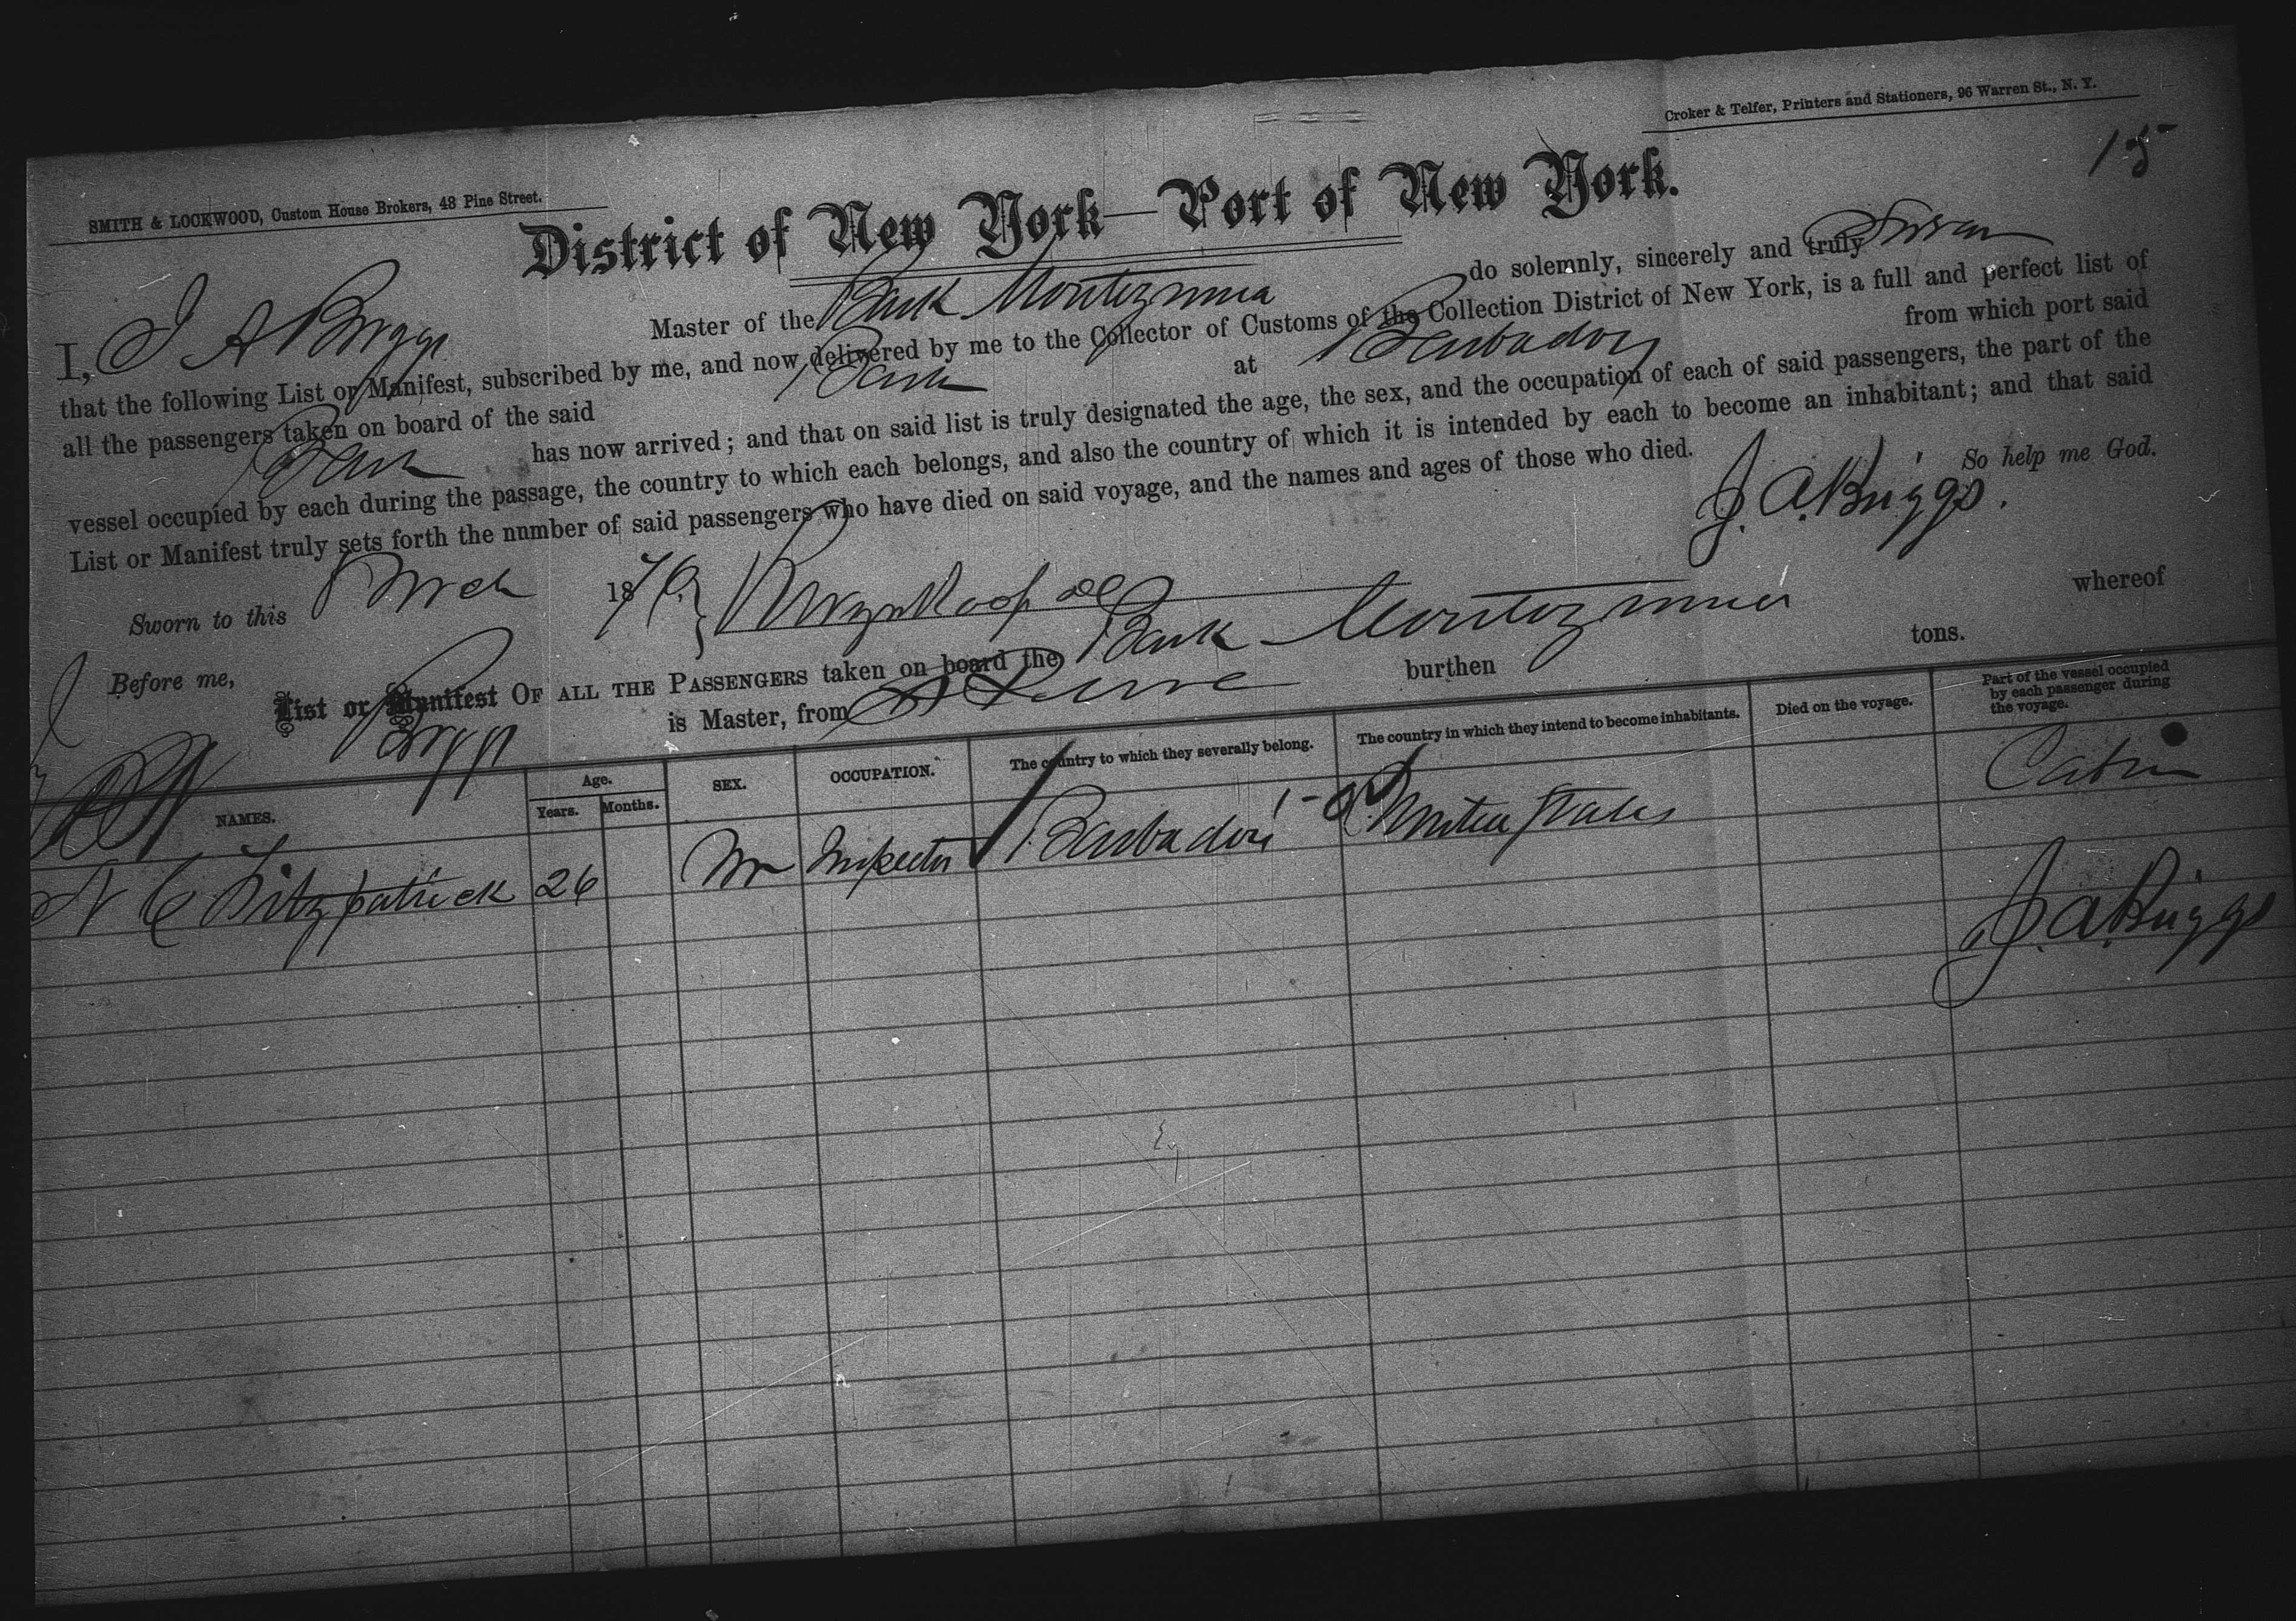 Croker & Telfer, Printers and Stationers, 96 Warren St., N. Y.
15
SMITH & LOCKWOOD, Custom House Brokers, 43 Pine Street.
District of New York—Port of New York.
I, J A Briggs Master of the Bark Montezuma do solemnly, sincerely and truly Swear
that the following List or Manifest, subscribed by me, and now delivered by me to the Collector of Customs of the Collection District of New York, is a full and perfect list of
all the passengers taken on board of the said Bark at Barbados from which port said
Bark has now arrived; and that on said list is truly designated the age, the sex, and the occupation of each of said passengers, the part of the
vessel occupied by each during the passage, the country to which each belongs, and also the country of which it is intended by each to become an inhabitant; and that said
List or Manifest truly sets forth the number of said passengers who have died on said voyage, and the names and ages of those who died.
So help me God.
J. A. Briggs.
Sworn to this 1876
Before me,
List or Manifest OF ALL THE PASSENGERS taken on board the Bark Montezuma whereof
Briggs is Master, from burthen tons.
NAMES. Age. Years. Months. SEX. OCCUPATION. The country to which they severally belong. The country in which they intend to become inhabitants. Died on the voyage. Part of the vessel occupied by each passenger during the voyage.
Fitzpatrick 26 m Inspector Barbados United States Cabin
J. A. Briggs